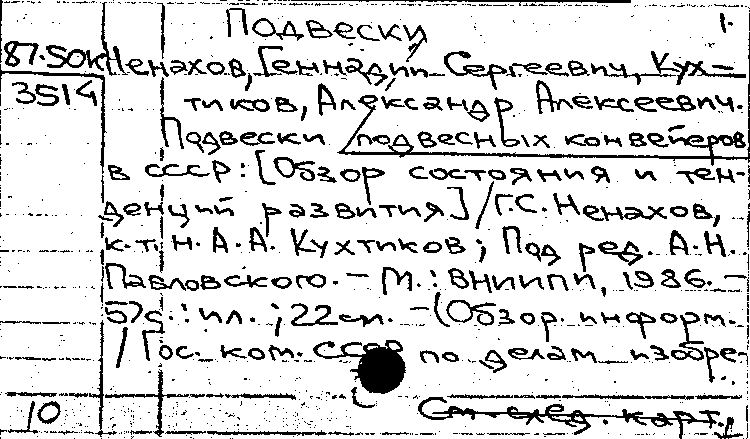 Подвески 1.
87.50К Ненахов, Геннадий Сергеевич, Кух-
3514 тиков, Александр Алексеевич.
Подвески подвесных конвейеров
в СССР: [Обзор состояния и тен-
денций развития] / Г.С. Ненахов,
к.т.н. А.А. Кухтиков; Под ред. А.Н.
Павловского. – М.: ВНИИПИ, 1986. –
57с.: ил.; 22 см. – (Обзор. информ.
/ Гос. ком. СССР по делам изобре-
10 См. след. карт.